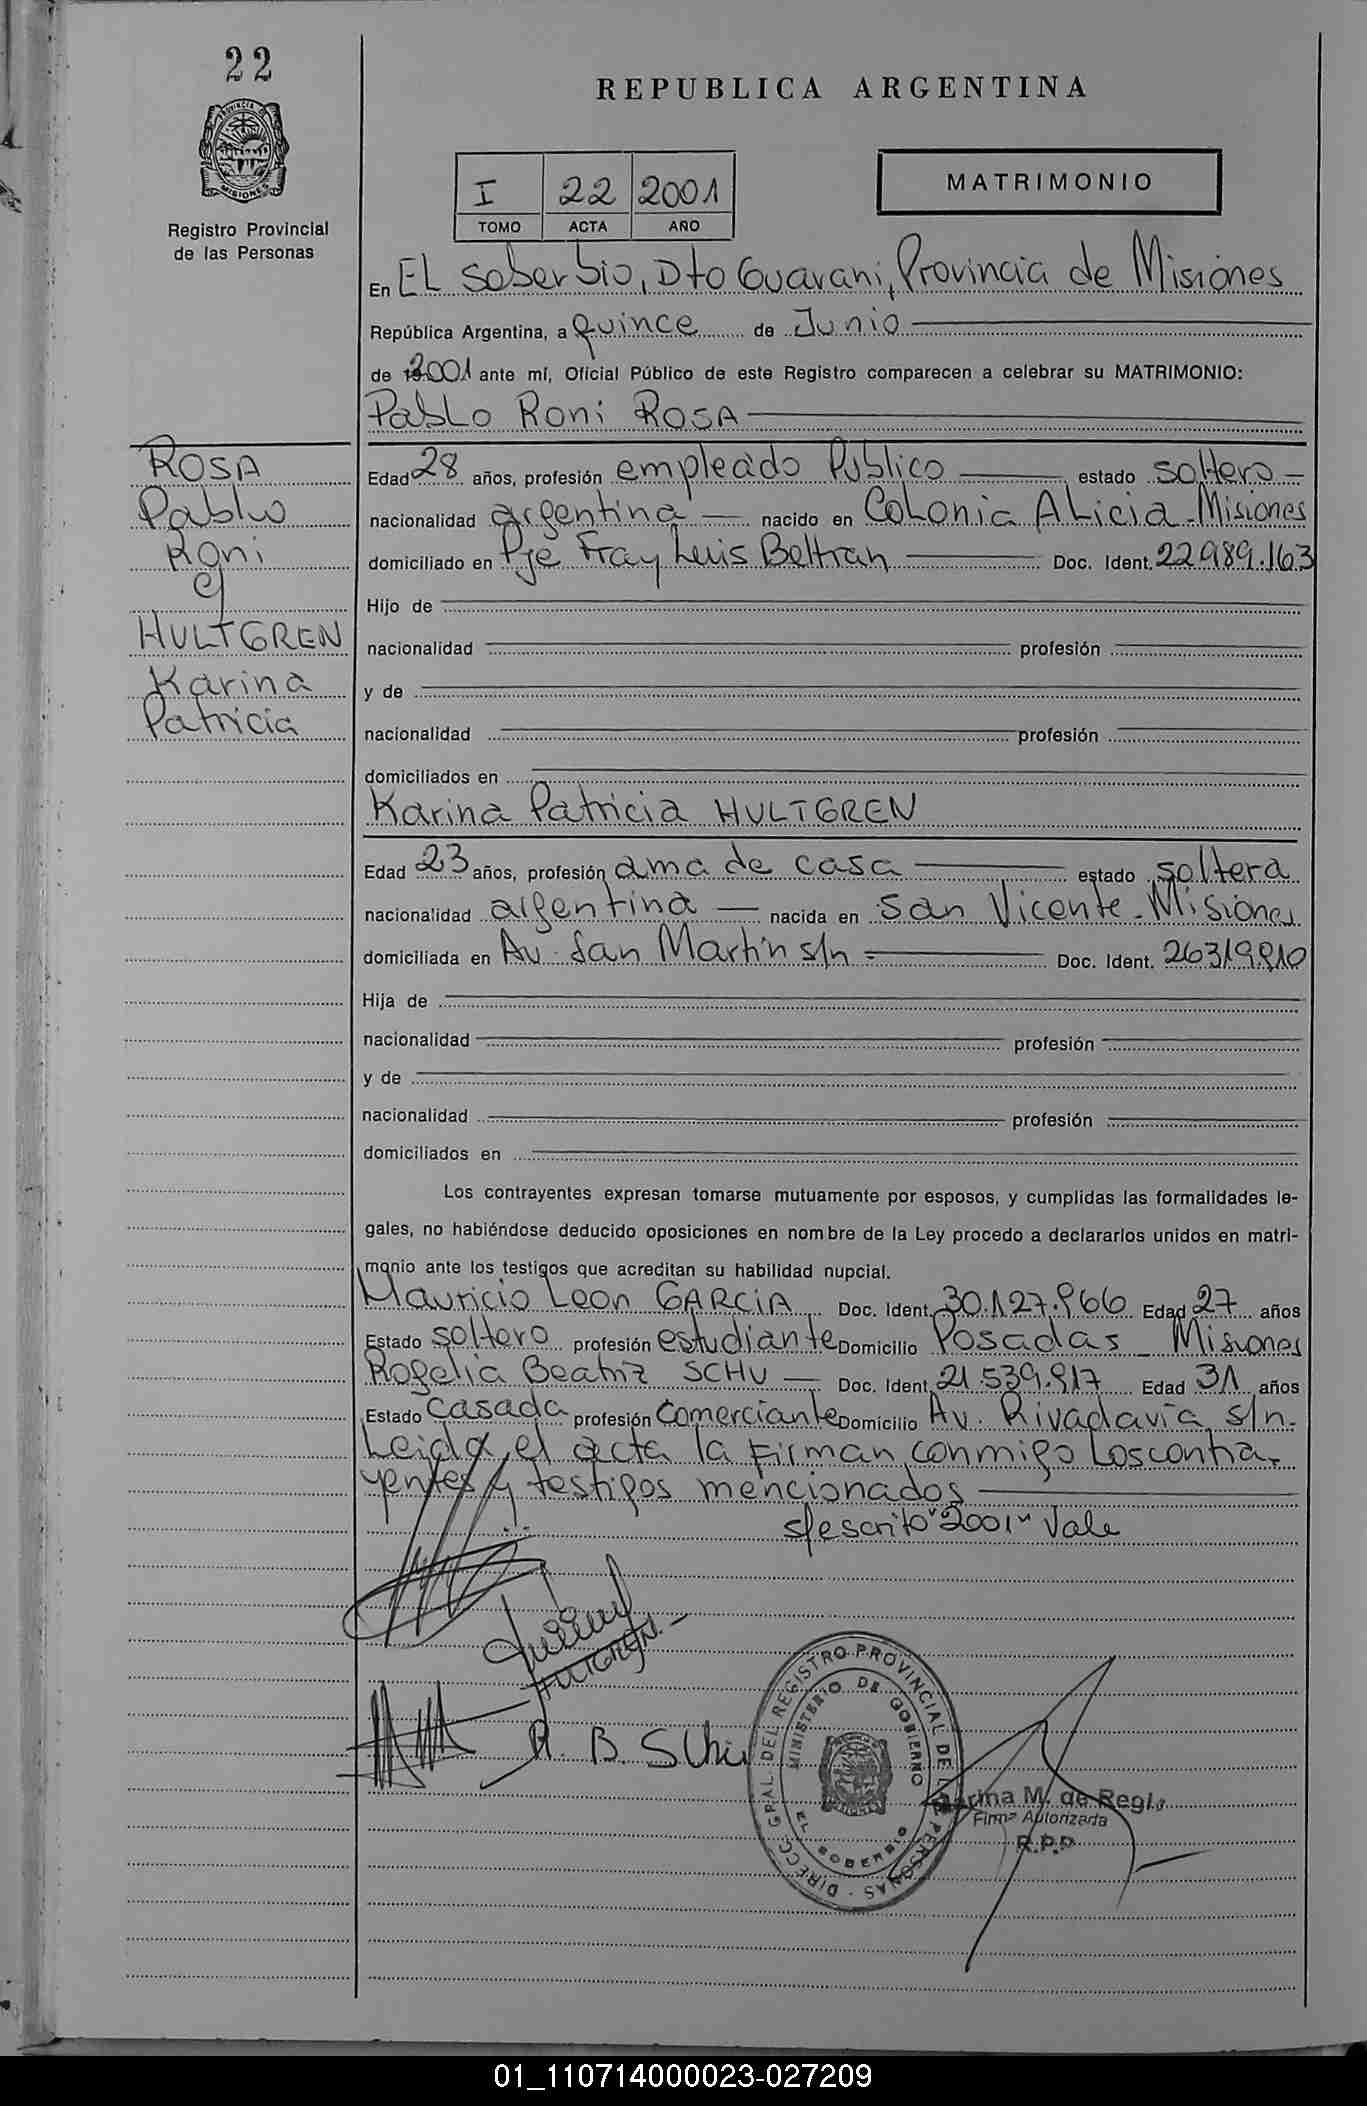 22
REPUBLICA ARGENTINA
PROVINCIA DE
MISIONES
Registro Provincial
de las Personas
I 22 2001
TOMO ACTA AÑO
MATRIMONIO
En EL Soberbio, Dto Guarani, Provincia de Misiones
República Argentina, a Quince de Junio
de 2001 ante mí, Oficial Público de este Registro comparecen a celebrar su MATRIMONIO:
Pablo Roni ROSA
ROSA
Pablo
Roni
y
HULTGREN
Karina
Patricia
Edad 28 años, profesión empleado Publico estado soltero
nacionalidad argentina nacido en Colonia Alicia-Misiones
domiciliado en Pje Fray Luis Beltran Doc. Ident. 22.989.163
Hijo de
nacionalidad profesión
y de
nacionalidad profesión
domiciliados en
Karina Patricia HULTGREN
Edad 23 años, profesión ama de casa estado soltera
nacionalidad argentina nacida en San Vicente-Misiones
domiciliada en Av. San Martin s/n Doc. Ident. 26319.810
Hija de
nacionalidad profesión
y de
nacionalidad profesión
domiciliados en
Los contrayentes expresan tomarse mutuamente por esposos, y cumplidas las formalidades le-
gales, no habiéndose deducido oposiciones en nombre de la Ley procedo a declararlos unidos en matri-
monio ante los testigos que acreditan su habilidad nupcial.
Mauricio Leon GARCIA Doc. Ident. 30.127.966 Edad 27 años
Estado soltero profesión estudiante Domicilio Posadas - Misiones
Rogelia Beatriz SCHU Doc. Ident. 21.539.917 Edad 31 años
Estado Casada profesión Comerciante Domicilio Av. Rivadavia s/n.
Leida el acta la firman conmigo los contra-
yentes y testigos mencionados
s/escrito "2001" Vale
HULTGREN
R. B. Schu
DIRECC. GRAL. DEL REGISTRO PROVINCIAL DE LAS PERSONAS
MINISTERIO DE GOBIERNO
EL SOBERBIO
M. de Regis
Firma Autorizada
R.P.P.
01_110714000023-027209